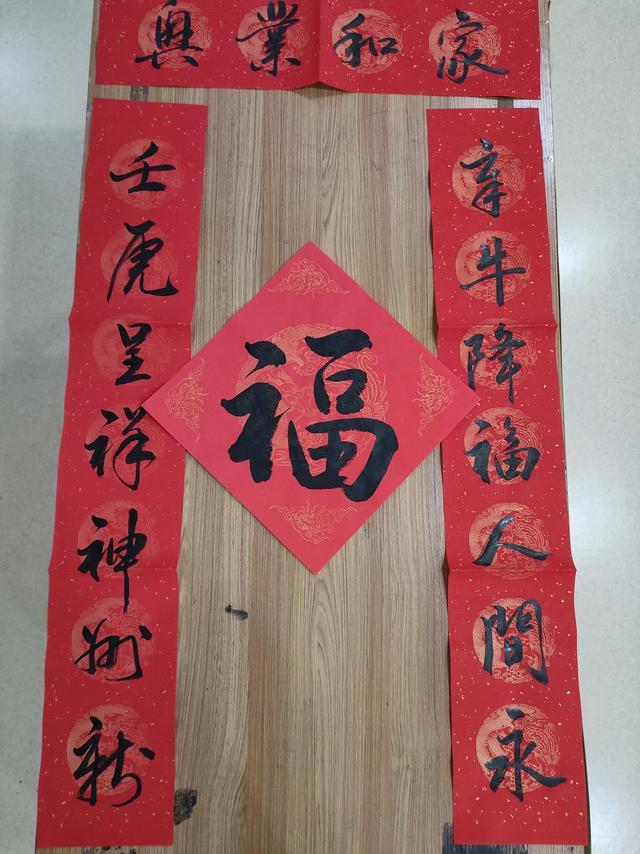 家和業興
辛牛降福人間永
壬虎呈祥神州新
福